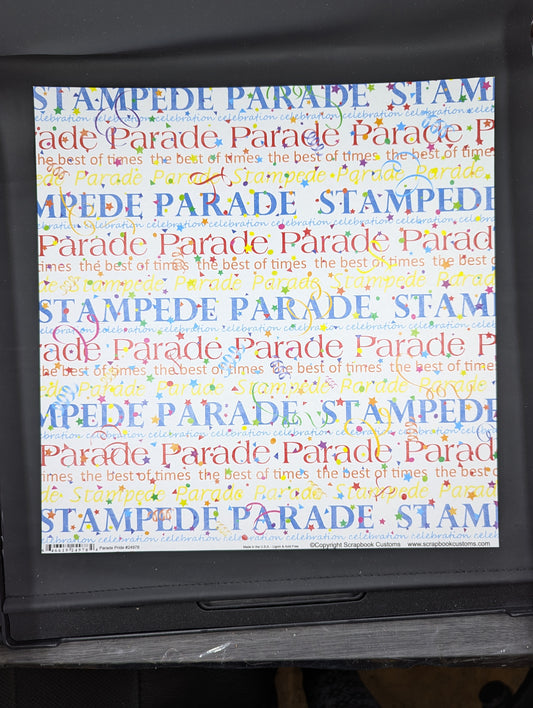 STAMPEDE PARADE STAM
celebration celebration celebration celebration celebration celeb
ade Parade Parade Parade P
he best of times the best of times the best of times the best of times
Parade Stampede Parade Stampede Parade
MPEDE PARADE STAMPEDE
celebration celebration celebration celebration celebration
Parade Parade Parade Parad
imes the best of times the best of times the best of times the best of
Stampede Parade Stampede Parade
STAMPEDE PARADE STAM
celebration celebration celebration celebration celebration
ade Parade Parade Parade P
he best of times the best of times the best of times the best of times
Parade Stampede Parade Stampede Parade
MPEDE PARADE STAMPEDE
bration celebration celebration celebration celebration celebration
Parade Parade Parade Parad
imes the best of times the best of times the best of times the best of
Stampede Parade Stampede Parade
STAMPEDE PARADE STAM
celebration celebration
Parade Pride #24978 Made in the U.S.A. - Lignin & Acid Free ©Copyright Scrapbook Customs www.scrapbookcustoms.com